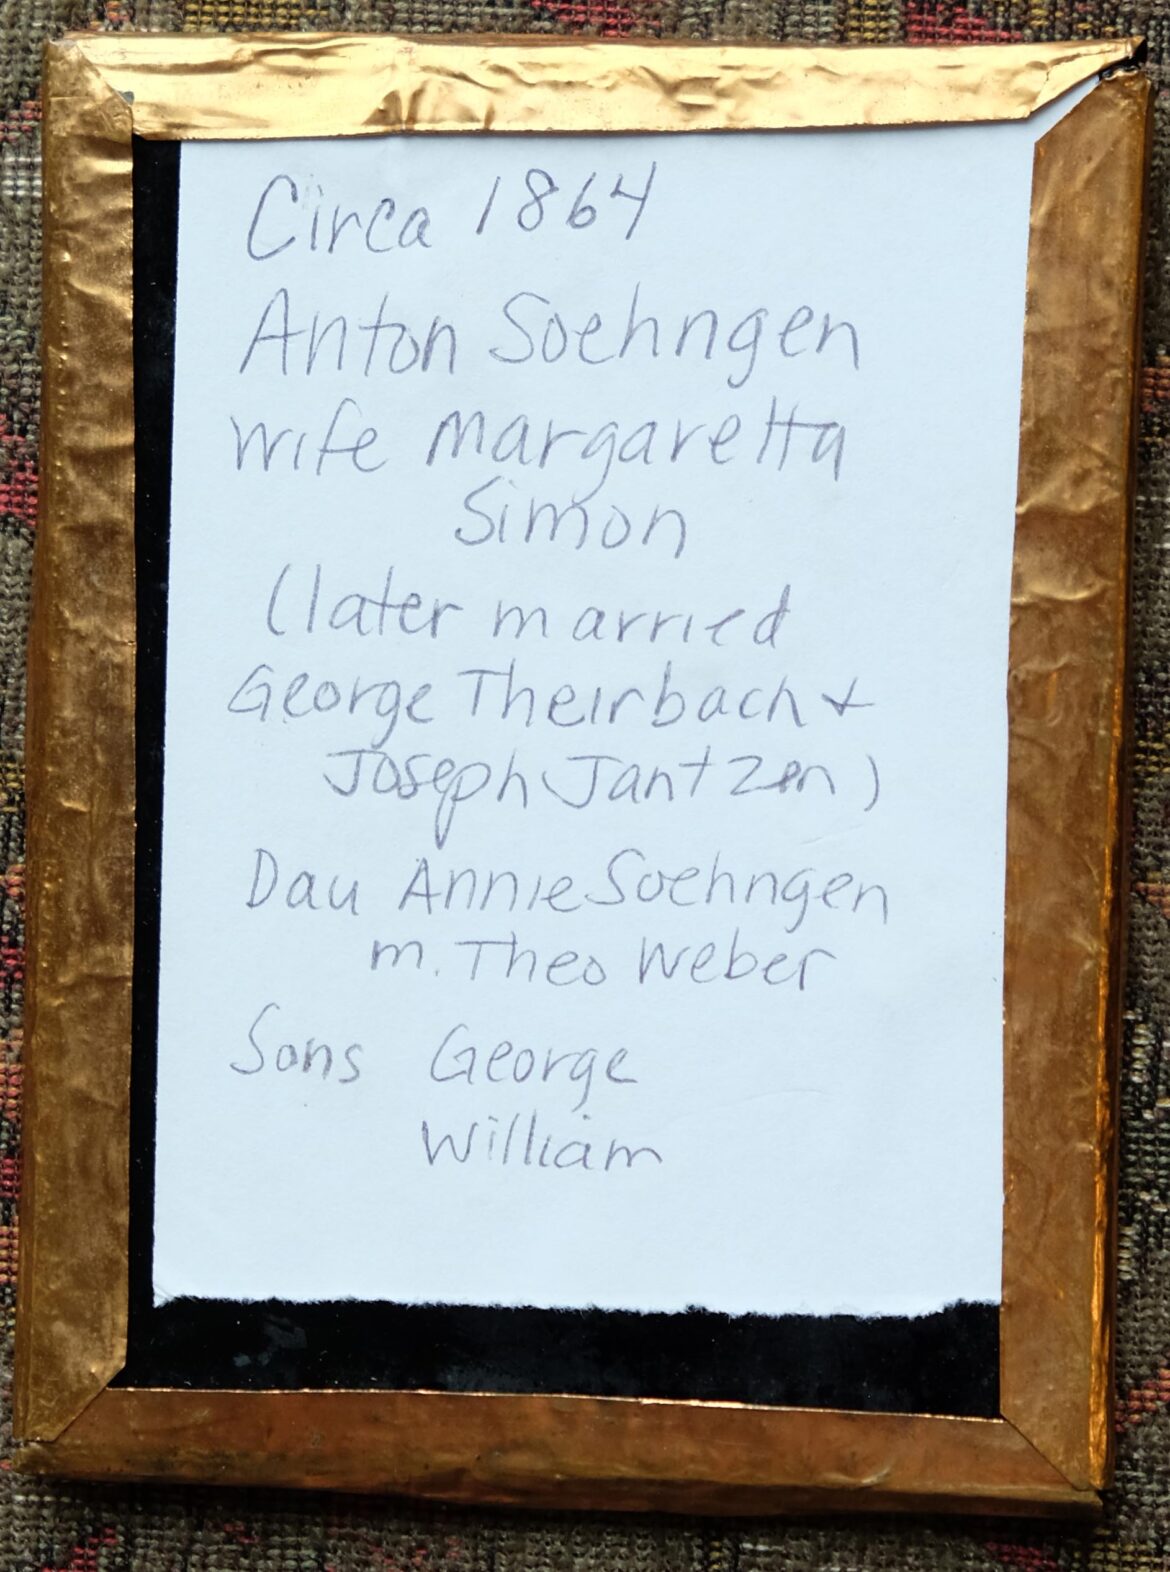 Circa 1864
Anton Soehngen
wife Margaretta
Simon
(later married
George Theirbach +
Joseph Jantzen)
Dau Annie Soehngen
m. Theo Weber
Sons George
William